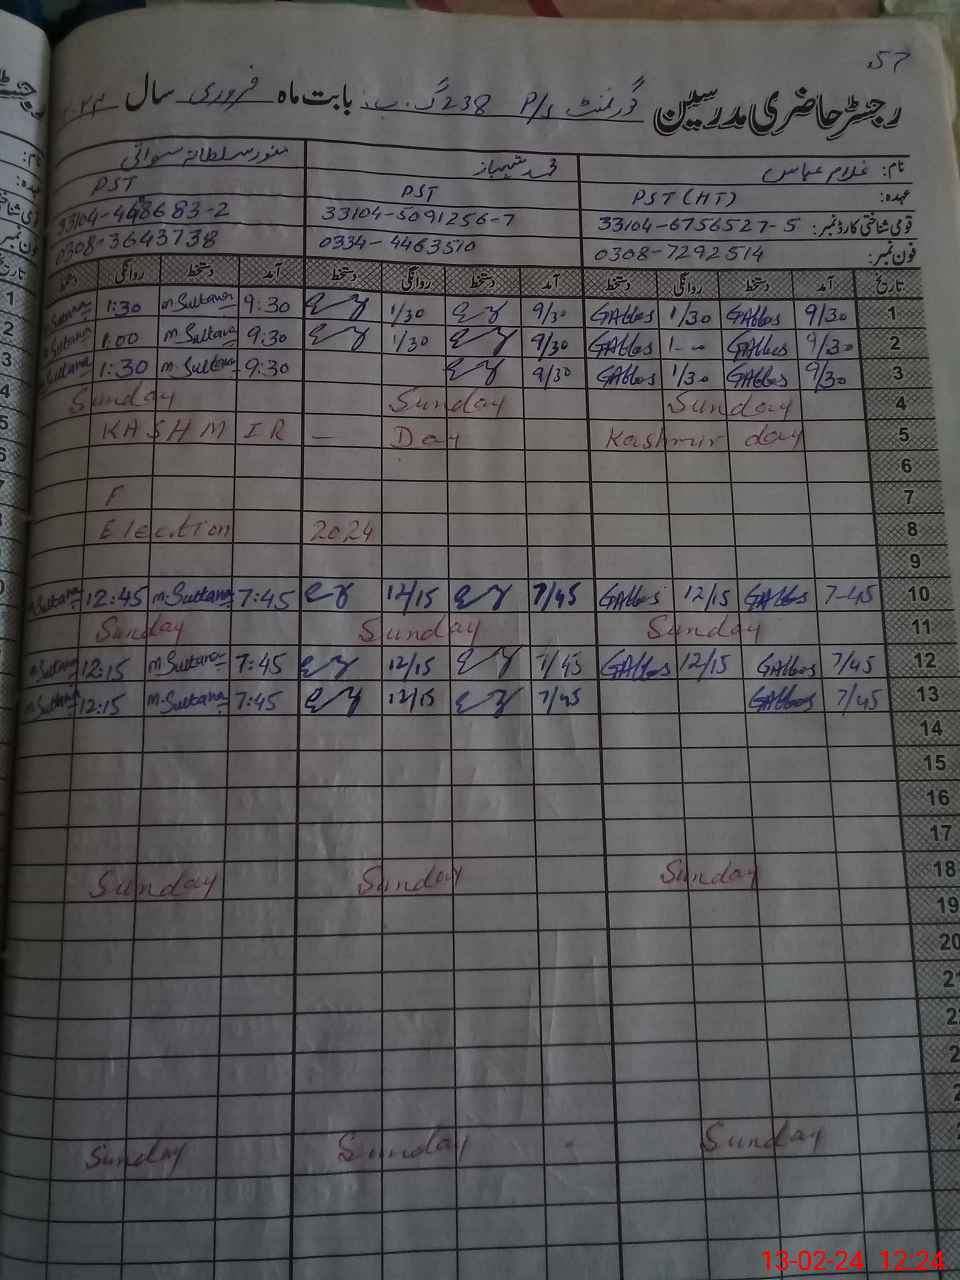 57
رجسٹر حاضری مدرسین گورنمنٹ P/S 238 گ ب بابت ماہ فروری سال ۲۰۲۴
نام: غلام عباس محمد شہباز منور سلطانہ
عہدہ: PST (HT) PST PST
قومی شناختی کارڈ نمبر: 33104-6756527-5 33104-5091256-7 33104-448683-2
فون نمبر: 0308-7292514 0334-4463510 0308-3643738
تاریخ آمد دستخط روانگی دستخط آمد دستخط روانگی دستخط آمد دستخط روانگی دستخط
1 9/30 GAbbas 1/30 GAbbas 9/30 1/30 9:30 M.Sultana 1:30
2 9/30 GAbbas 1-00 GAbbas 9/30 1/30 9:30 M.Sultana 1:00
3 9/30 GAbbas 1/30 GAbbas 9/30 9:30 M.Sultana 1:30
4 Sunday Sunday Sunday
5 Kashmir day KASHMIR - Day
6
7 F
8 Election 2024
9
10 7-45 GAbbas 12/15 GAbbas 7/45 12/15 7:45 M.Sultana 12:45 M.Sultana
11 Sunday Sunday Sunday
12 7/45 GAbbas 12/15 GAbbas 7/45 12/15 7:45 M.Sultana 12:15 M.Sultana
13 7/45 GAbbas 7/45 12/15 7:45 M.Sultana 12:15 M.Sultana
14
15
16
17
18 Sunday Sunday Sunday
19
20
Sunday Sunday Sunday
13-02-24 12:24